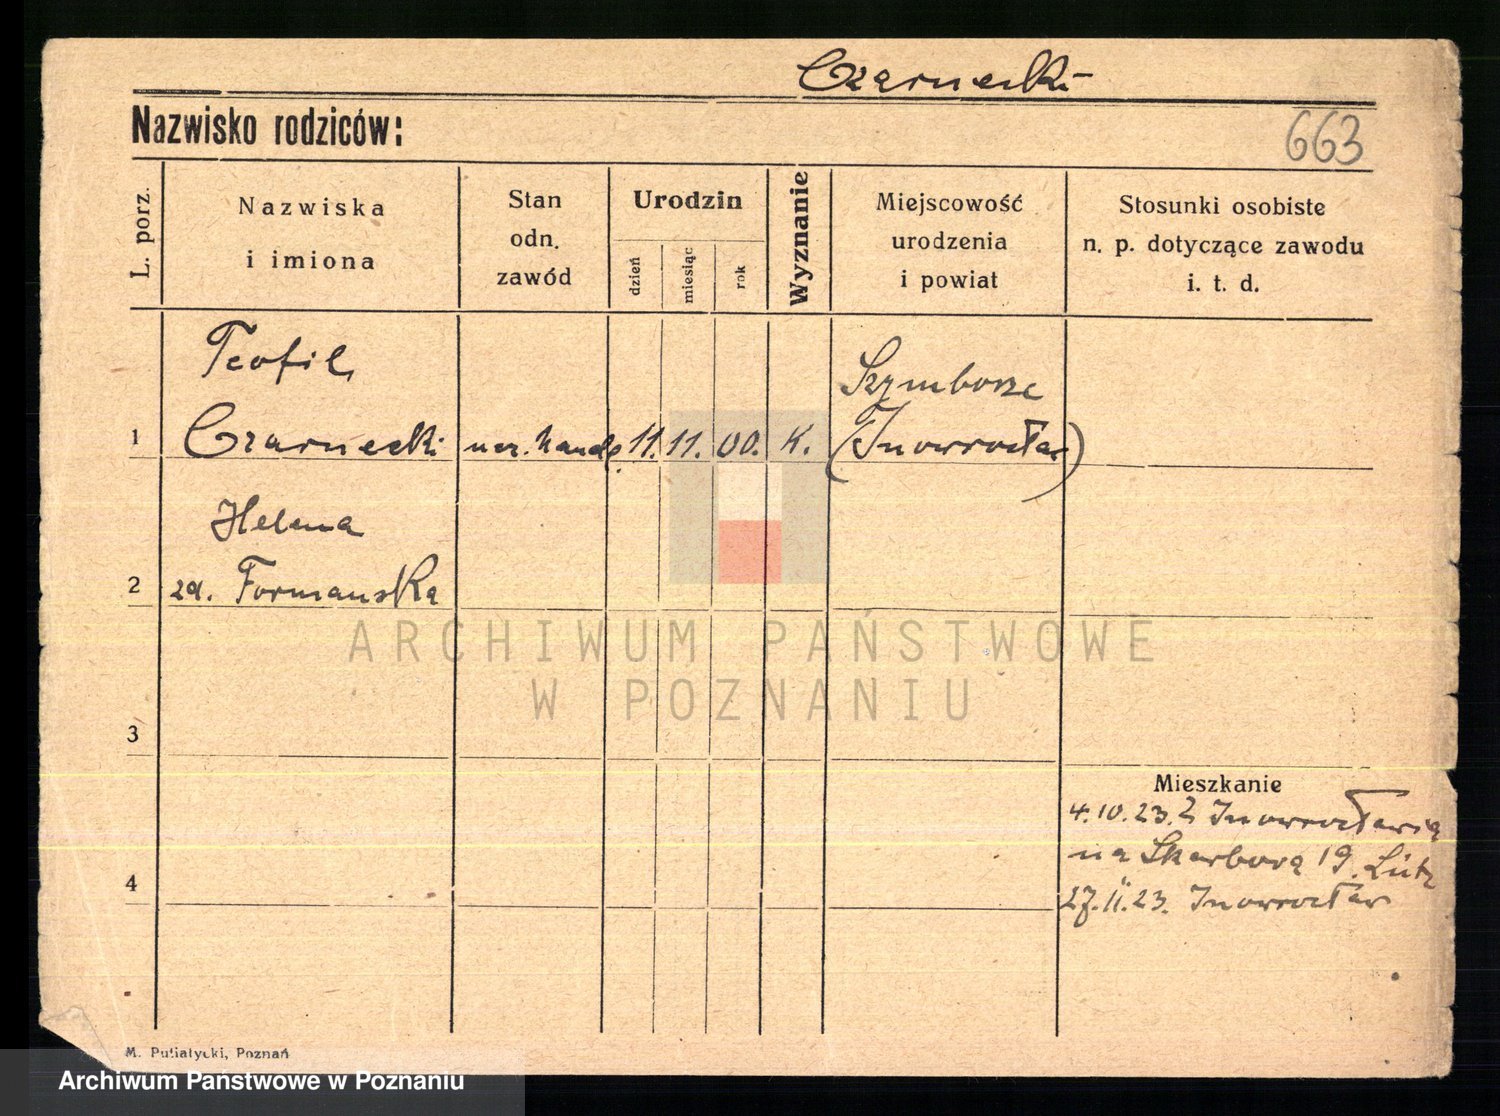 Czarnecki
Nazwisko rodziców:
663
L. porz.
Nazwiska
i imiona
Stan
odn.
zawód
Urodzin
dzień
miesiąc
rok
Wyznanie
Miejscowość
urodzenia
i powiat
Stosunki osobiste
n. p. dotyczące zawodu
i. t. d.
Teofil
Szymborze
1 Czarnecki ucz. handl. 11. 11. 00. K. (Inowrocław)
Helena
2 zd. Formańska
ARCHIWUM PAŃSTWOWE
W POZNANIU
3
Mieszkanie
4.10.23. Z Inowrocławia
na Skarbową 19.
4
27.11.23. Inowrocław
M. Putiatycki, Poznań
Archiwum Państwowe w Poznaniu